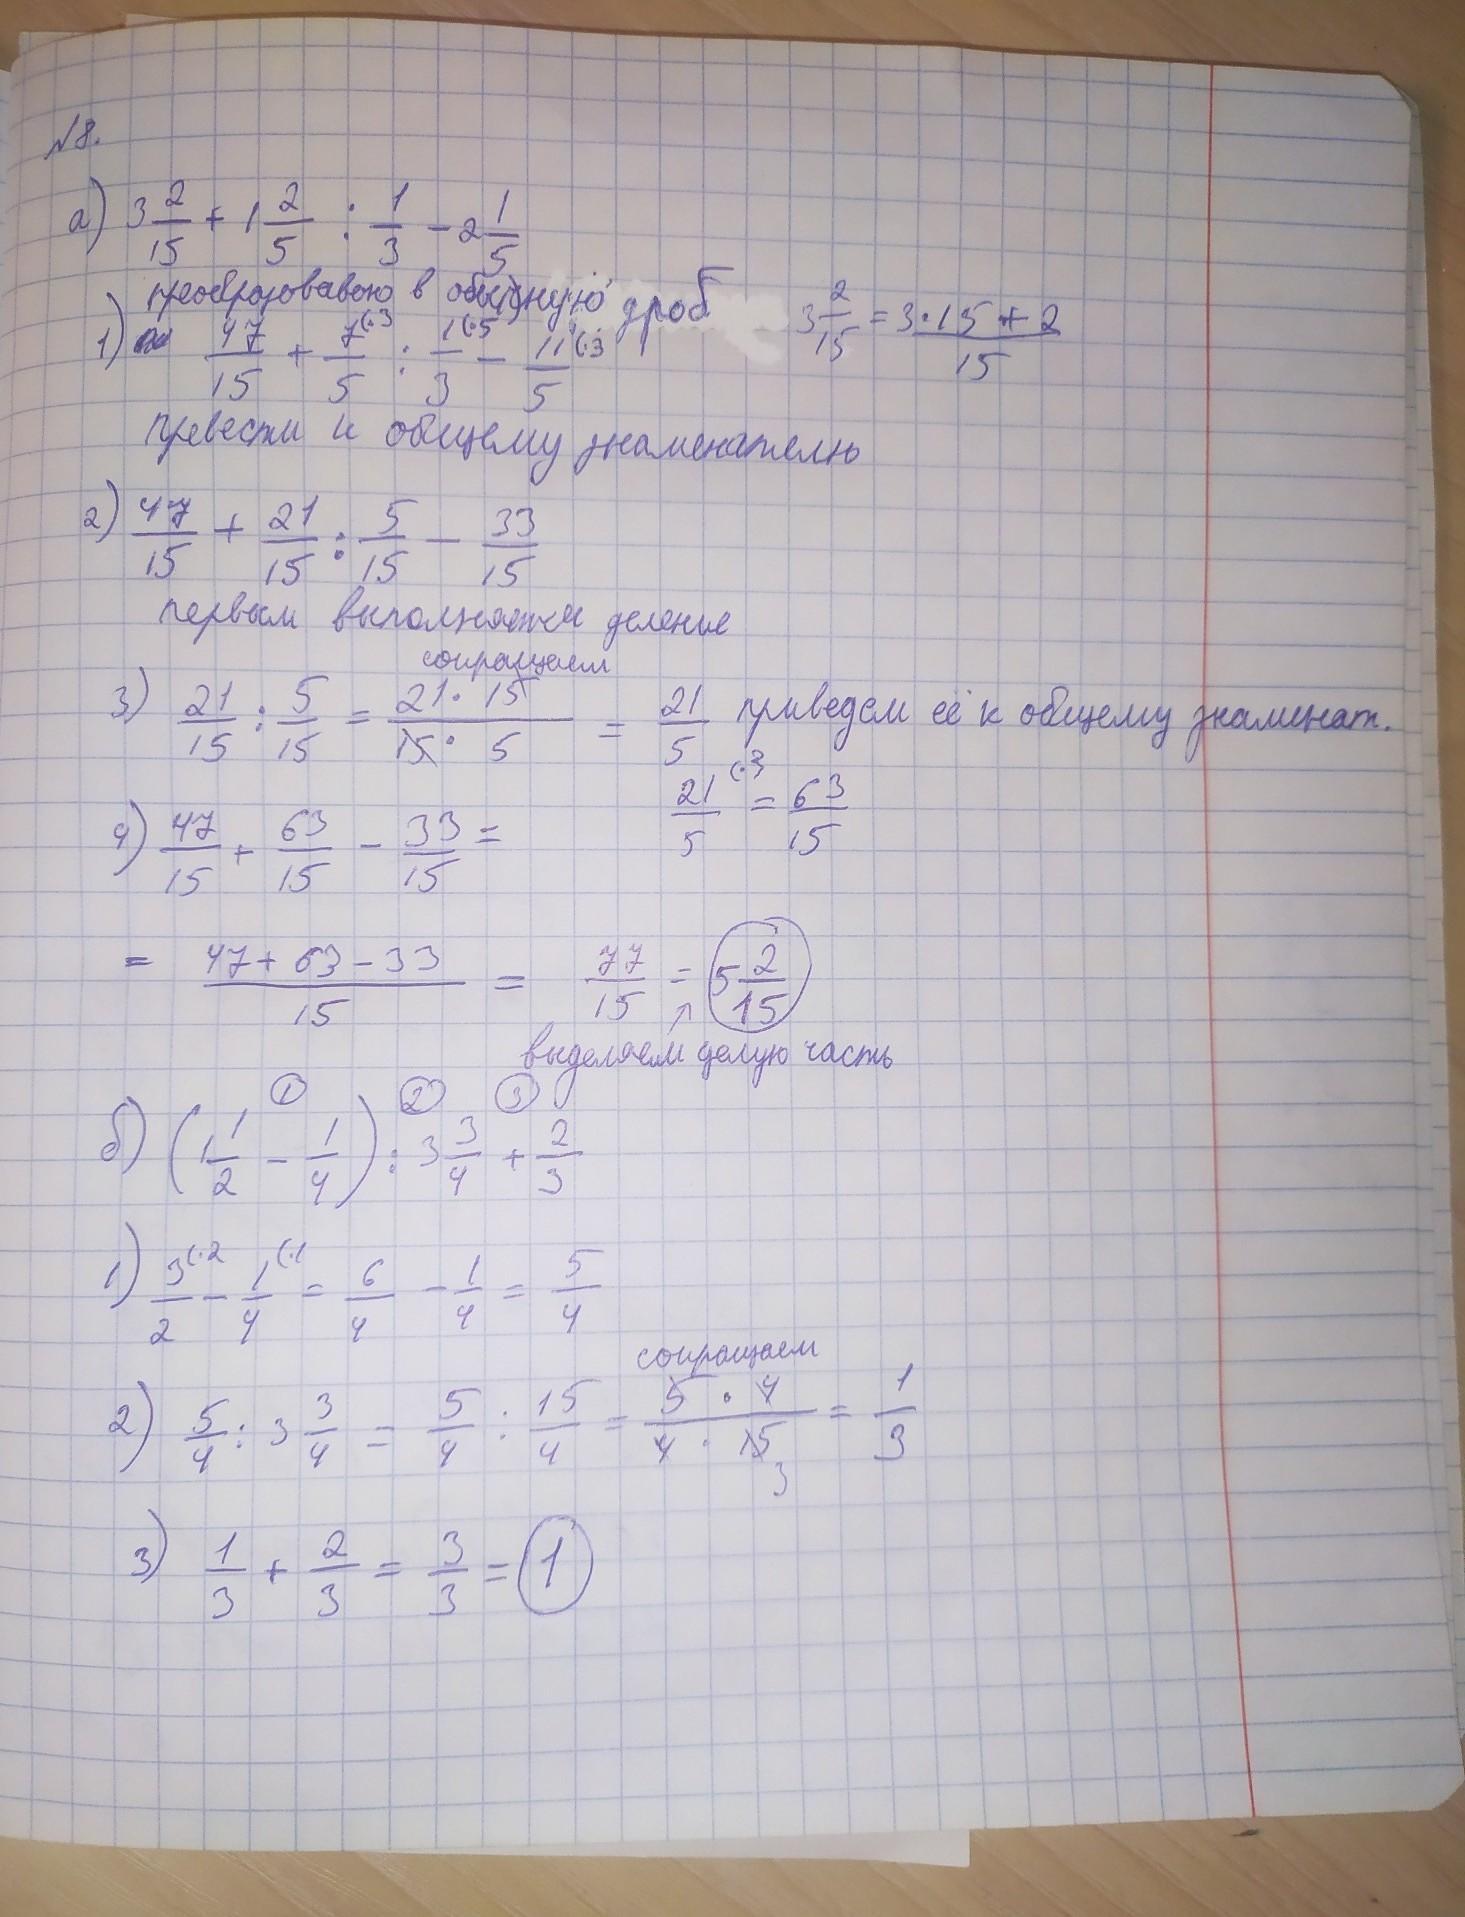 №8.
а) 3 2/15 + 1 2/5 : 1/3 − 2 1/5
преобразовавою в обычную дроб 3 2/15 = (3·15+2)/15
1) 47/15 + 7/5 (·3 : 1/3 (·5 − 11/5 (·3
превести к общему знаменателю
2) 47/15 + 21/15 : 5/15 − 33/15
первым выполняется деление
сокращаем
3) 21/15 : 5/15 = (21·15)/(15·5) = 21/5 приведем её к общему знаменат.
21/5 (·3 = 63/15
4) 47/15 + 63/15 − 33/15 =
= (47+63−33)/15 = 77/15 = 5 2/15
выделяем целую часть
① ② ③
б) (1 1/2 − 1/4) : 3 3/4 + 2/3
1) 3/2 (·2 − 1/4 (·1 = 6/4 − 1/4 = 5/4
сокращаем
2) 5/4 : 3 3/4 = 5/4 : 15/4 = (5·4)/(4·15) = 1/3
3
3) 1/3 + 2/3 = 3/3 = 1